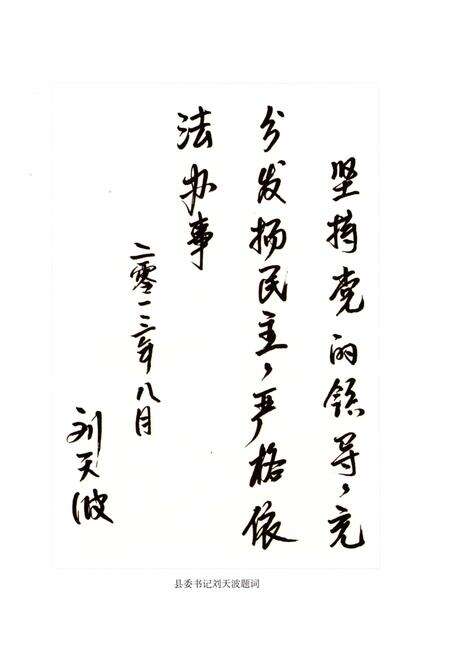 坚持党的领导，充
分发扬民主，严格依
法办事
二零一三年八月
刘天波
县委书记刘天波题词